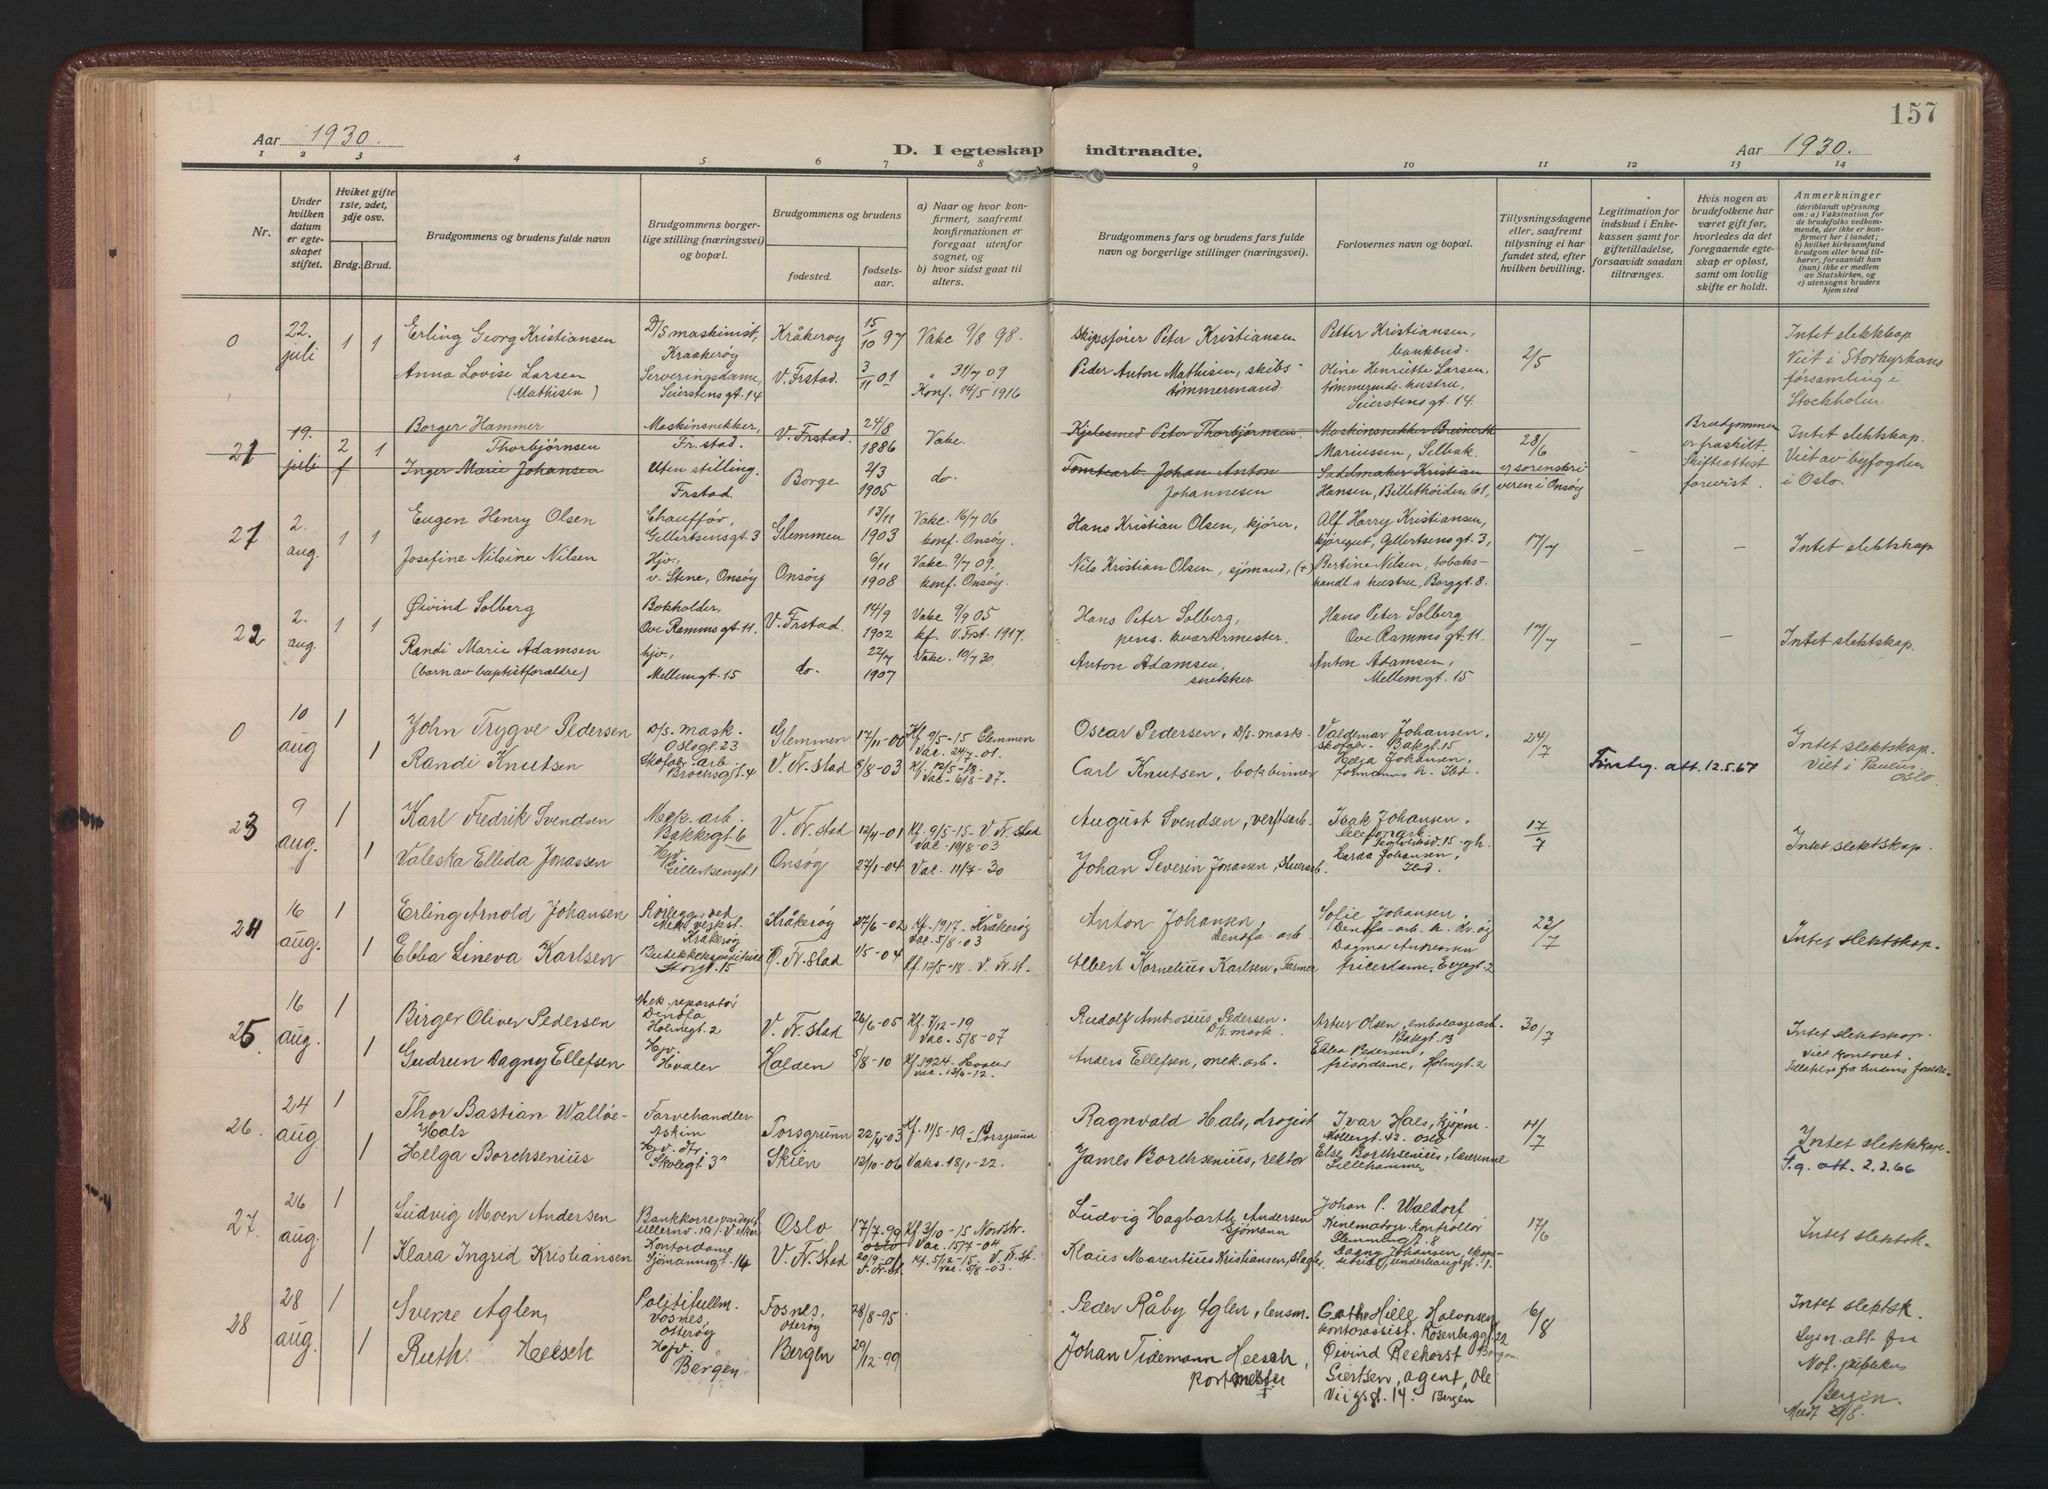 157
Aar 1930.
D. I egteskap indtraadte.
Aar 1930.
1 2 3 4 5 6 7 8 9 10 11 12 13 14
Nr.
Under hvilken datum er egteskapet stiftet.
Hviket gifte 1ste, 2det, 3dje osv.
Brdg. Brud.
Brudgommens og brudens fulde navn
Brudgommens borgerlige stilling (næringsvei) og bopæl.
Brudgommens og brudens
fødested.
fødselsaar.
a) Naar og hvor konfirmert, saafremt konfirmationen er foregaat utenfor sognet, og
b) hvor sidst gaat til alters.
Brudgommens fars og brudens fars fulde navn og borgerlige stillinger (næringsvei).
Forlovernes navn og bopæl.
Tillysningsdagene eller, saafremt tillysning ei har fundet sted, efter hvilken bevilling.
Legitimation for indskud i Enkekassen samt for giftetilladelse, forsaavidt saadan tiltrænges.
Hvis nogen av brudefolkene har været gift før, hvorledes da det foregaaende egteskap er opløst, samt om lovlig skifte er holdt.
Anmerkninger
(deriblandt oplysning om: a) Vaksination for de brudefolks vedkommende, der ikke er konfirmert her i landet; b) hvilket kirkesamfund brudgom eller brud tilhører, forsaavidt han (hun) ikke er medlem av Statskirken, og c) utensogns bruders hjemsted
0 22. juli 1 1 Erling Georg Kristiansen D/S maskinist, Kraakerøy Kråkerøy 15/10 97 Vakc 9/8 98. Skipsfører Peter Kristiansen Petter Kristiansen, bankbud. 2/5 Intet slektskap.
Anna Lovise Larsen (Mathisen) Serveringsdame, Seierstensgt. 14 V. Frstad. 3/11 01 " 31/7 09 Konf. 14/5 1916 Peder Anton Mathisen, skibstømmermand. Oline Henriette Larsen, tømmermds. hustru, Seierstensgt. 14. Viet i Storkyrkans församling i Stockholm.
21 19. juli 2 1 Borger Hammer Thorbjørnsen Maskinsnekker, Fr.stad. V. Frstad. 24/8 1886 Vakc. Kjelesmed Peter Thorbjørnsen. Maskinsnekker Breinerth Mariussen, Selbak. 28/6 Brudgommen er fraskilt. Intet slektskap.
f Inger Marie Johansen Uten stilling. Frstad. Borge 2/3 1905 do. Tomtearb. Johan Anton Johannesen Sadelmaker Kristian Hansen, Billethöiden 61, sorenskriveren i Onsøy Skifteattest forevist. Viet av byfogden i Oslo.
27 2. aug. 1 1 Eugen Henry Olsen Chauffør, Gellertsensgt 3 Glemmen 13/11 1903 Vakc. 16/7 06 konf. Onsøy. Hans Kristian Olsen, kjører, Alf Harry Kristiansen, kjøregut, Gellertsensgt 3, 17/7 – – Intet slektskap
Josefine Nilsine Nilsen Hjv., v. Stene, Onsøy Onsøy 6/11 1908 Vakc. 9/7 09. konf. Onsøy. Nils Kristian Olsen, sjømand, (+) Bertine Nilsen, tobakshandl.s hustru, Borggt. 8.
22 2. aug. 1 1 Øivind Solberg Bokholder, Ove Rammsgt. 11. V. Frstad. 14/9 1902 Vakc 9/9 05 kf. V. Frst. 1917. Hans Peter Solberg, pens. kvartermester. Hans Peter Solberg Ove Rammsgt. 11. 17/7 – – Intet slektskap.
Randi Marie Adamsen (barn av baptistforældre) hjv., Mellemgt. 15 do. 22/7 1907 Vakc. 10/7 30. Anton Adamsen, snekker Anton Adamsen, Mellemgt. 15
0 10 aug 1 John Trygve Pedersen D/s. mask. Oslogt. 23 Glemmen 17/11-00 Kf. 9/5-15 Glemmen Vac. 24/7-01. Oscar Pedersen, D/s. mask. Valdemar Johansen, skofabr. Bakgt. 15 24/7 Fintrg. att. 12.5.67 Intet slektskap.
1 Randi Knutsen Skofabr. arb. Brochsgt. 4 V. Fr.stad 8/8-03 Kf. 12/5-18 Vac. 6/8-07. Carl Knutsen, bokbinner Helga Johansen, formanns h. Ibd. Viet i Paulus. Oslo
23 9 aug. 1 Karl Fredrik Svendsen Mek. arb. Bakkegt. 6 V. Fr.stad 12/4-01 Kf. 9/5-15- V. Fr.stad Vac. 19/8-03 August Svendsen, verftsarb. Isak Johansen, 17/7 Intet slektskap.
1 Valeska Ellida Jonassen Hjv Gellertsensgt 1 Onsøy 27/1-04 Vac. 11/7-30 Johan Severin Jonassen, stuerarb. Johansen, Ibd.
24 16 aug. 1 Erling Arnold Johansen Rørlegger ved Mek verkst. Kråkerøy Kråkerøy 27/6-02 Kf. 1917. Kråkerøy Vac. 5/8-03 Anton Johansen, Denofa-arb. Sofie Johansen, Denofa-arb. h. Kr.øy 23/7 Intet slektskap.
1 Ebba Lineva Karlsen Butikkekspeditrice Storgt. 15 Ø. Fr.stad 1/5-04 Kf. 12/5-18. V. Fr.st. Albert Kornelius Karlsen, Farmer Dagmar Andressen fricerdame, Evjegt. 2
25 16 aug. 1 Birger Oliver Pedersen Mek. reparatør Denofa Holmegt. 2 V. Fr.stad 26/6-05 Kf. 7/12-19 Vac. 5/8-07 Rudolf Ambrosius Pedersen. D/s. mask. Artur Olsen, embalagearb. Bakgt. 13 30/7 Intet slektskap.
1 Gudrun Dagny Ellefsen Hjv. Hvaler Halden 5/8-10 Kf. 1924. Hvaler Vac. 13/6-12. Anders Ellefsen, mek. arb. Pedersen, frisørdame, Holmgt. 2 Viet kontoret. Tillatelse fra brudens foreldre.
26. 24 aug. 1 Thor Bastian Walløe-Hals Farvehandler Askim Porsgrunn 22/4-03 Kf. 11/5-19 Porsgrunn Ragnvald Hals, drogist Ivar Hals, kjøpm. Møllergt. 42. Oslo 11/7 Intet slektskap.
1 Helga Borchsenius Hjv. dtr. Skolegt. 3" Skien 13/10-06 Vaks. 18/1-22. James Borchsenius, rektor Else Borchsenius, lærerinne Lillehammer F.g. att. 2.2.66
27. 26 aug. 1 Ludvig Moen Andersen Bankkorrespondent Ullernv. 19 V. Aker Oslo 17/7-99 Kf. 3/10-15 Nordstr. Vac. 15/7-04 Ludvig Hagbarth Andersen Sjømann Johan P. Waldorf Kinematogr. kontrollør Glemmengt. 8 17/6 Intet slektsk.
1 Klara Ingrid Kristiansen Kontordame Sjømannsgt. 14 V. Fr.stad Oslo 20/9-01 V. Fr.st. Kf. 5/12-15. V. Fr.st. Vac. 5/8-03. Klaus Marentius Kristiansen, slagter Dagny Johansen,
28 28 aug 1 Sverre Aglen Politifullm. Vosnes, Otterøy Fosnes, Otterøy 28/8-95 Peder Råby Aglen, lensm. Cathe Hille Halvorsen kontorassist. Rosenberggt. 22 Bergen. 6/8 Intet slektsk.
1 Ruth Heesch Hjv. Bergen Bergen 29/12-99 Johan Tidemann Heesch, portmester Øivind Rechorst Giertsen, agent, Ole Viigsgt. 14 - Bergen Lysn. att. fra Not. publikus Bergen.
Meldt 9/8.